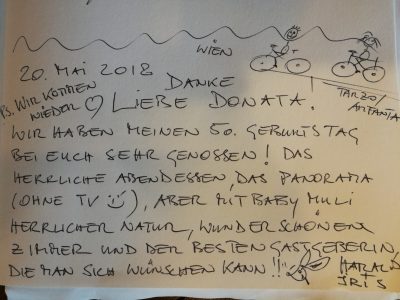 WIEN
20. MAI 2018
TARZO
PS. WIR KOMMEN
WIEDER ♡
DANKE
LIEBE DONATA.
WIR HABEN MEINEN 50. GEBURTSTAG
BEI EUCH SEHR GENOSSEN! DAS
HERRLICHE ABENDESSEN, DAS PANORAMA
(OHNE TV 😊), ABER MIT BABY MULI
HERRLICHER NATUR, WUNDERSCHÖNEM
ZIMMER UND DER BESTEN GASTGEBERIN,
DIE MAN SICH WÜNSCHEN KANN!!
HARALD
IRIS